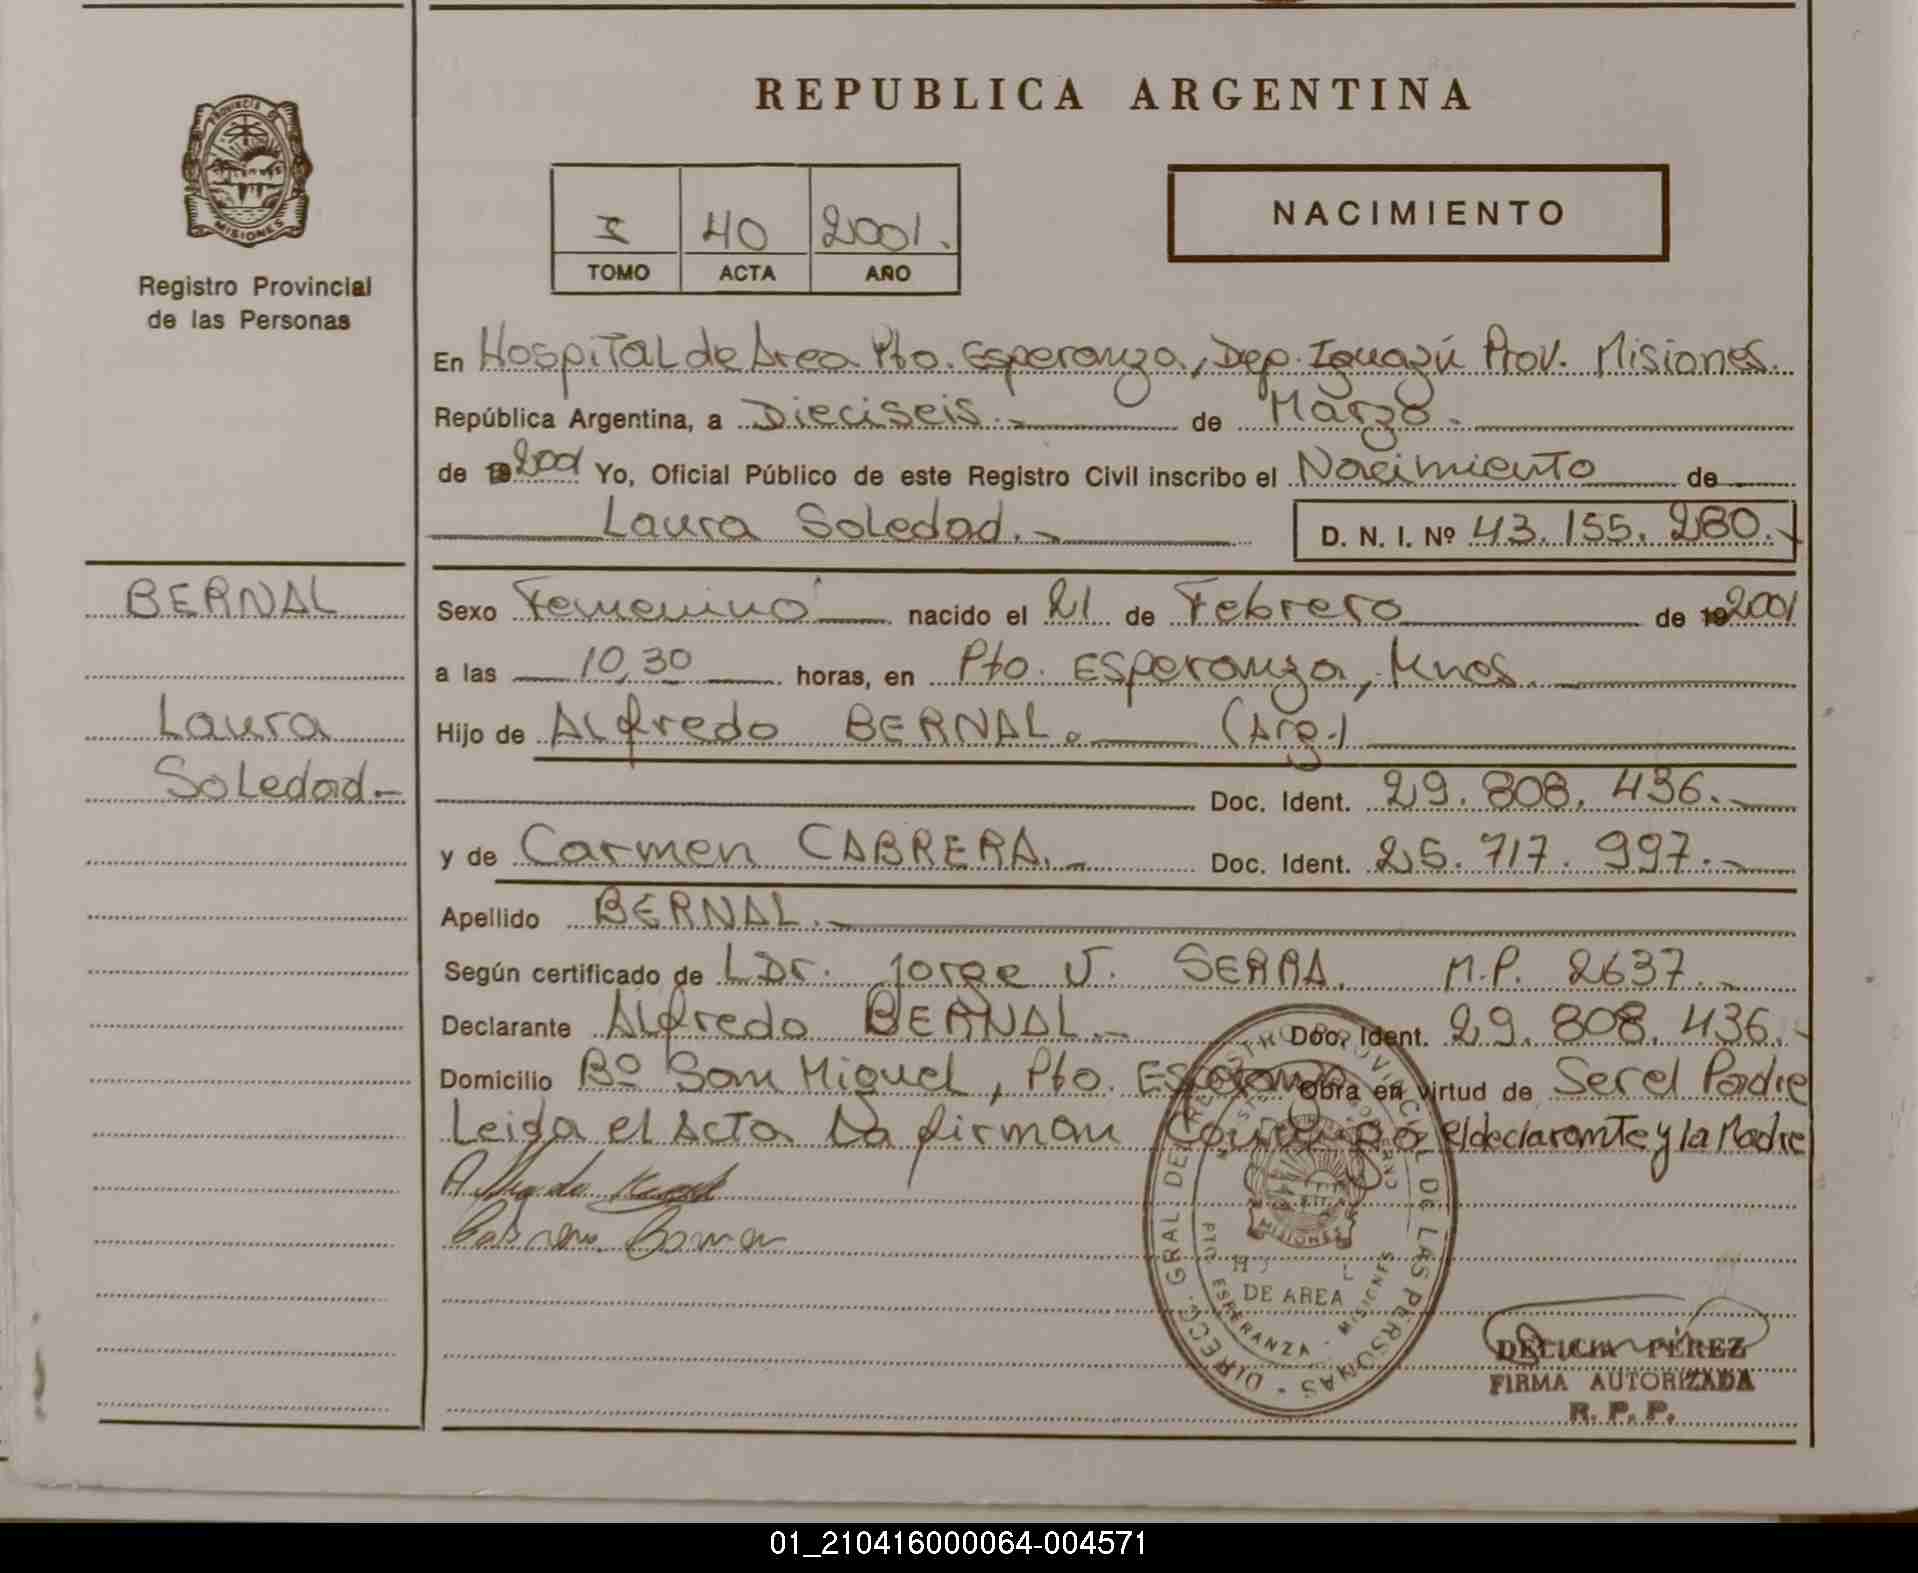 REPUBLICA ARGENTINA
PROVINCIA DE
MISIONES
Registro Provincial
de las Personas
I 40 2001.
TOMO ACTA AÑO
NACIMIENTO
En Hospital de Area Pto. Esperanza, Dep. Iguazú Prov. Misiones.
República Argentina, a Dieciseis.- de Marzo.
de 192001 Yo, Oficial Público de este Registro Civil inscribo el Nacimiento de
Laura Soledad.- D. N. I. Nº 43.155.280.-
BERNAL
Laura
Soledad.-
Sexo Femenino nacido el 21 de Febrero de 192001
a las 10,30 horas, en Pto. Esperanza, Mnes.
Hijo de Alfredo BERNAL. (Arg.)
Doc. Ident. 29.808.436.-
y de Carmen CABRERA.- Doc. Ident. 25.717.997.-
Apellido BERNAL.-
Según certificado de LDr. Jorge V. SERRA. M.P. 2637.-
Declarante Alfredo BERNAL.- Doc. Ident. 29.808.436.-
Domicilio Bº San Miguel, Pto. Esperanza Obra en virtud de Ser el Padre
Leida el Acta La firman Conmigo el declarante y la Madre
Cabrera Carmen
DIRECC. GRAL DE REGISTRO PROVINCIAL DE LAS PERSONAS
MISIONES
DE AREA
PTO ESPERANZA - MISIONES
DELICIA PÉREZ
FIRMA AUTORIZADA
R. P. P.
01_210416000064-004571